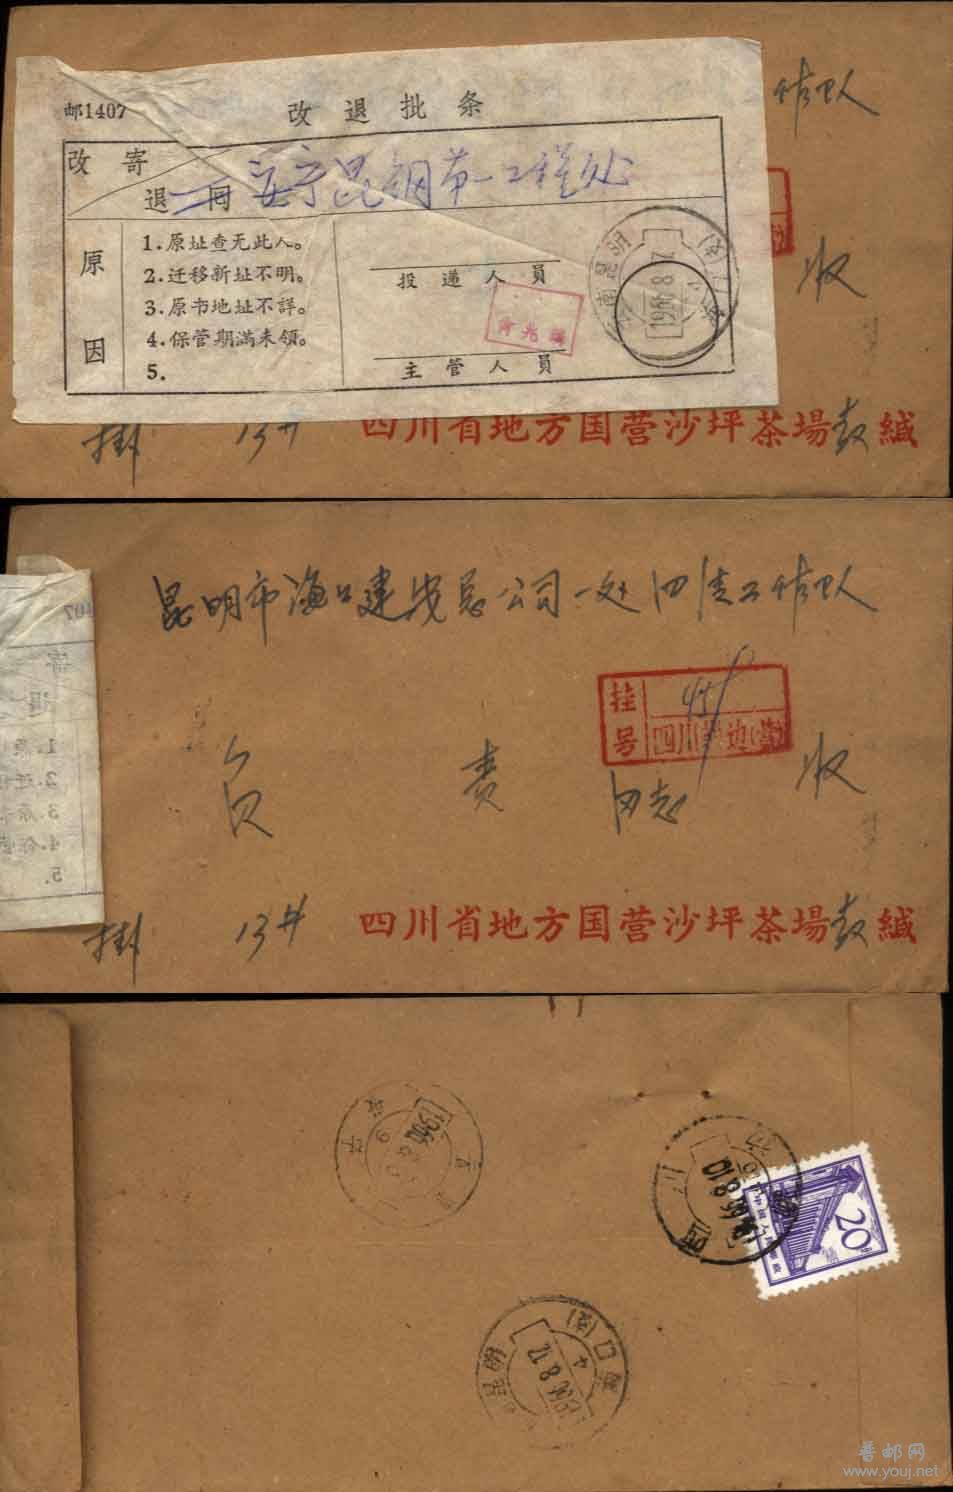 邮1407
改退批条
改寄
退回
安宁昆钢第一工程处
原因
1.原址查无此人。
2.迁移新址不明。
3.原书地址不詳。
4.保管期満未領。
5.
投递人員
主管人員
1966.8.
工作队
收
掛 13井 四川省地方国营沙坪茶場 緘
昆明市海口建筑总公司一处四清工作队
挂号
四川 边(营)
负责同志收
掛 13井 四川省地方国营沙坪茶場 緘
1966.8
四川
1966.8.10
20
昆明
1966.8.12
海口
普邮网
www.youj.net